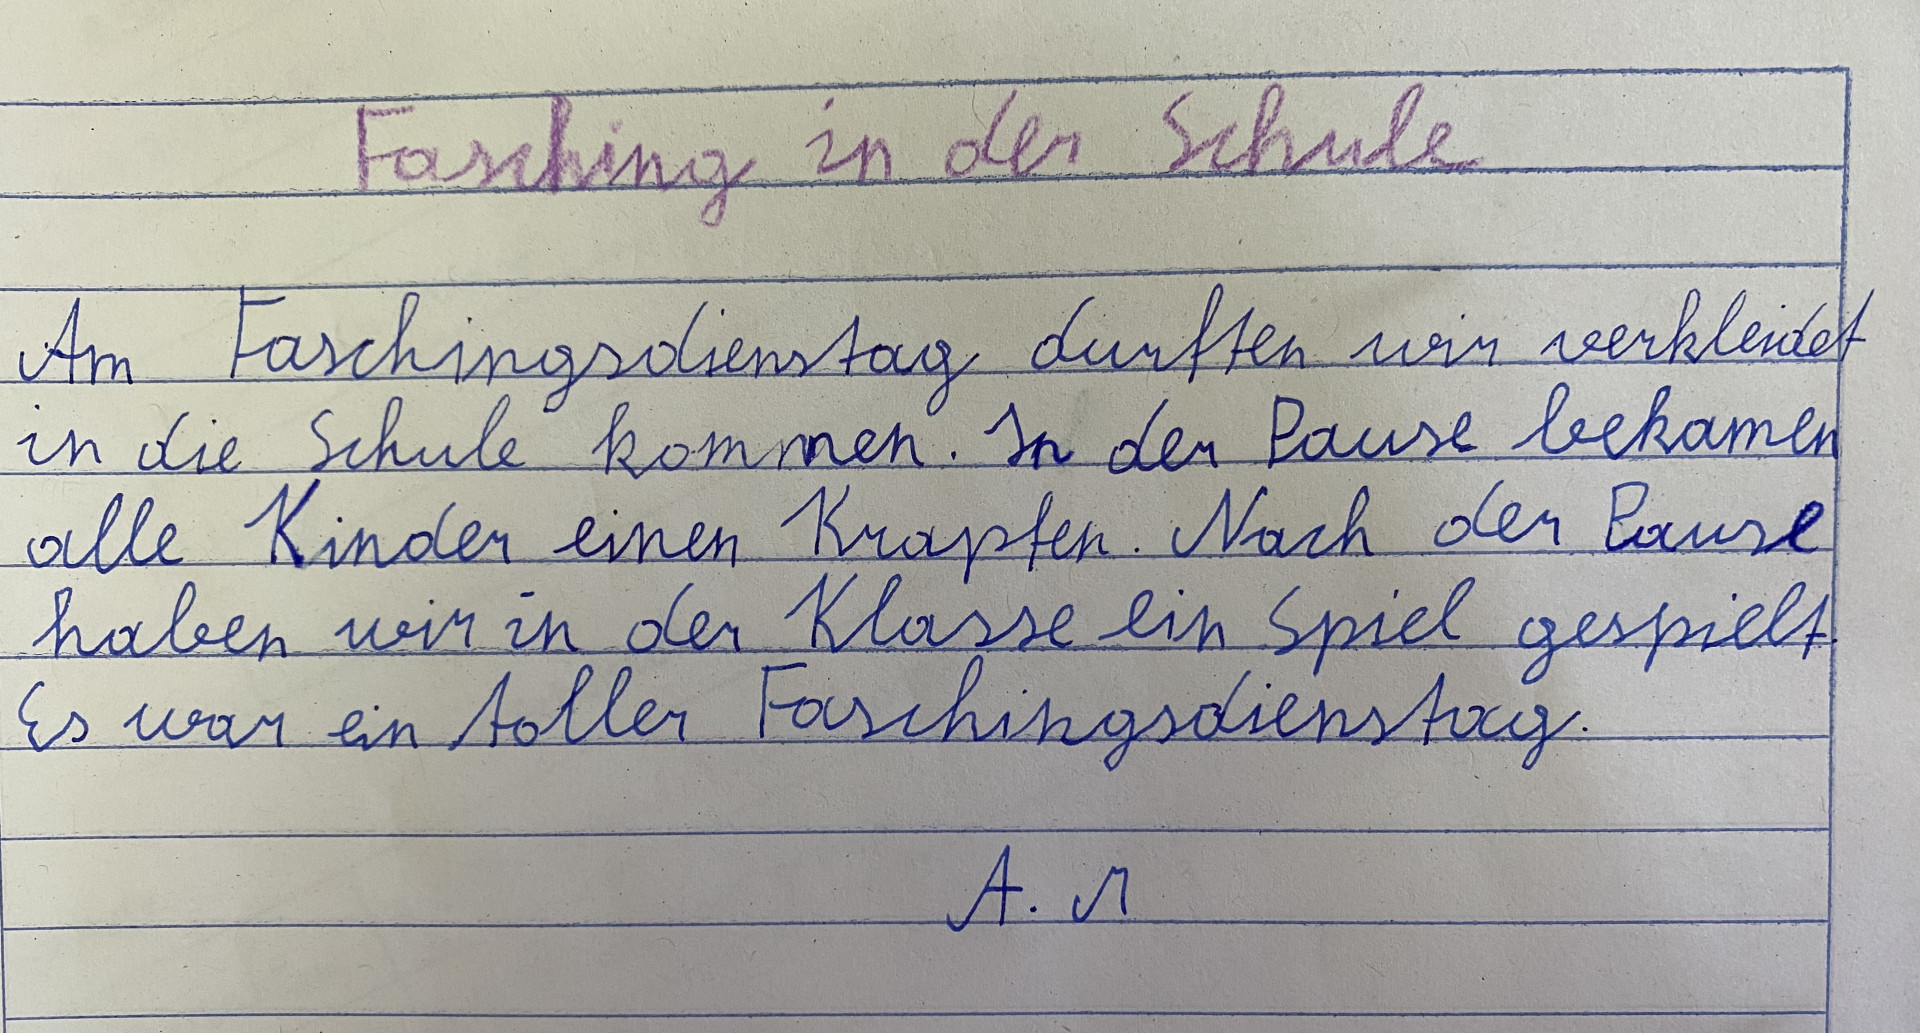 Fasching in der Schule
Am Faschingsdienstag durften wir verkleidet
in die Schule kommen. In der Pause bekamen
alle Kinder einen Krapfen. Nach der Pause
haben wir in der Klasse ein Spiel gespielt.
Es war ein toller Faschingsdienstag.
A.